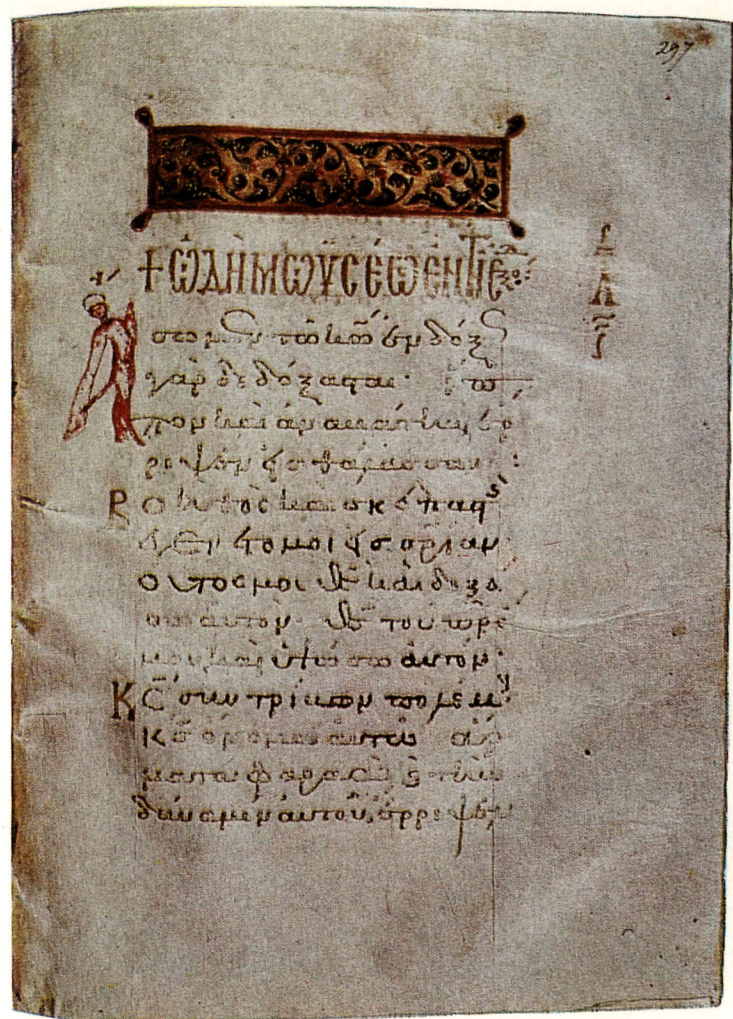 297
+ ὨΔῊ ΜΩΥΣΈΩ ἘΝ ΤΗ Ἐξο
σωμεν τῶ κω ἐνδόξ
γὰρ δεδόξασται· ἵπ
πον καὶ ἀναβάτην ἔρ
ριψεν εἰς θάλασσαν:
Βοηθὸς καὶ σκεπασ
ἐγένετό μοι εἰς σρίαν
οὗτος μοι θς καὶ δοξά
σω αὐτόν· θς τοῦ πρς
μου καὶ ὑψώσω αὐτόν·
Κς συντρίβων πολέμ
κς ὄνομα αὐτῶ ἅρ
ματα φαραὼ καὶ τὴν
δύναμιν αὐτοῦ, ἔρριψεν